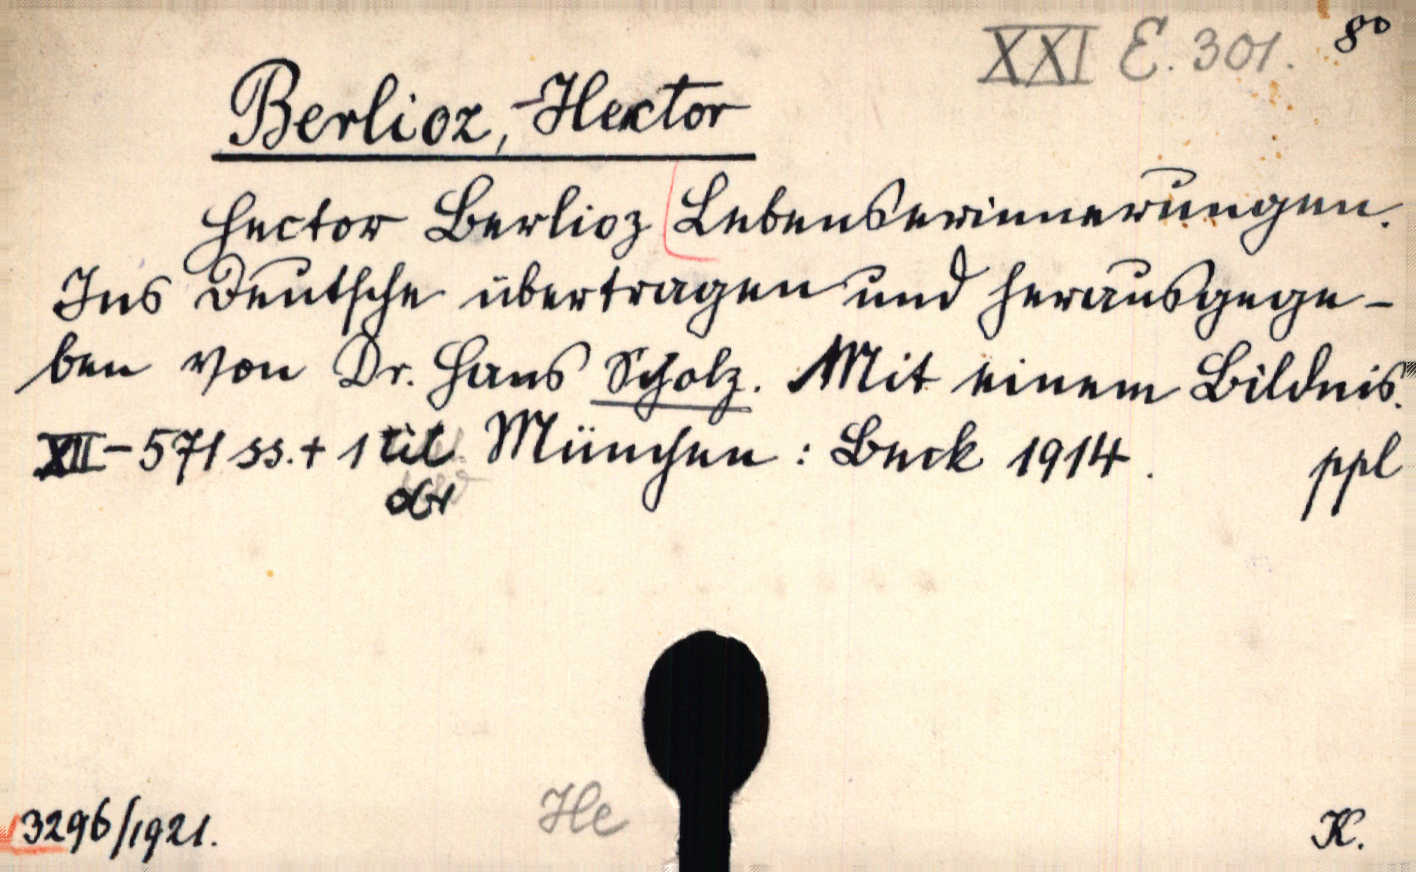 XXI E. 301. 8°
Berlioz, Hector
Hector Berlioz Lebenserinnerungen.
Ins Deutsche übertragen und herausgege-
ben von Dr. Hans Scholz. Mit einem Bildnis.
XII-571 ss. + 1 tit. München: Beck 1914. ppl
obr
3296/1921. He K.